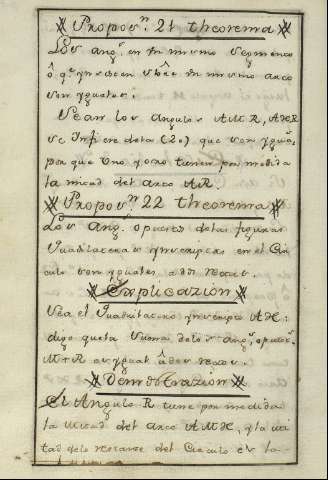 Propos.n 21 theorema
Los ang.s en un mismo segmento
ô q.e insisten sobre un mismo arco
son yguales.
Sean los angulos AMR, AXR
se infiere dela (20) que son ygua.s
por que uno, y otro tienen por medida
la mitad del arco AR.
Propos.n 22 theorema
Los ang.s opuestos delas figuras
quadrilateras ynscriptas en el Cir
culo son yguales â dos rectos.
Explicazion
Sea el quadrilatero ynscripto AX:
digo que la suma delos ang.s opues.s
M+R es ygual â dos rectos.
Demostrazion
El Angulo R tiene por medida
la mitad del arco AMX, y la mi
tad delo restante del Circulo es la